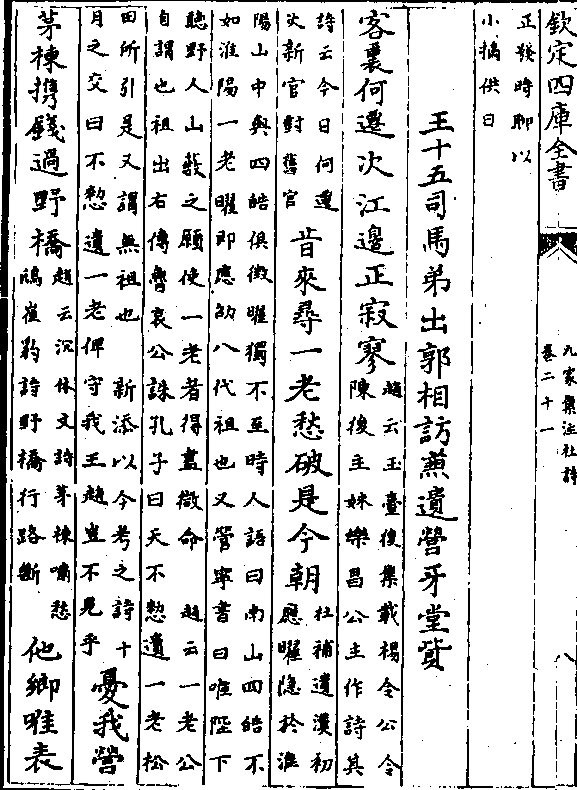 欽定四庫全書
九家集注杜詩
卷二十一
八
正發時聊以
小摘供日
王十五司馬弟出郭相訪兼遺營牙堂貲
客裏何遷次江邊正寂寥
趙云玉臺後集載楊令公令
陳後主妹樂昌公主作詩其
詩云今日何遷
次新官對舊官
肯來尋一老愁破是今朝
杜補遺漢初
應曜隠於淮
陽山中與四皓俱徴曜獨不至時人語曰南山四皓不
如淮陽一老曜即應劭八代祖也又管寧書曰唯陛下
聽野人山藪之願使一老者得盡微命 趙云一老公
自謂也祖出右傳魯哀公誄孔子曰天不憗遺一老松
田所引是又謂無祖也 新添以今考之詩十
月之交曰不憗遺一老俾守我王趙豈不見乎
憂我營
茅棟携錢過野橋
趙云沉休文詩茅棟嘯愁
鴟崔豹詩野橋行路斷
他鄉唯表